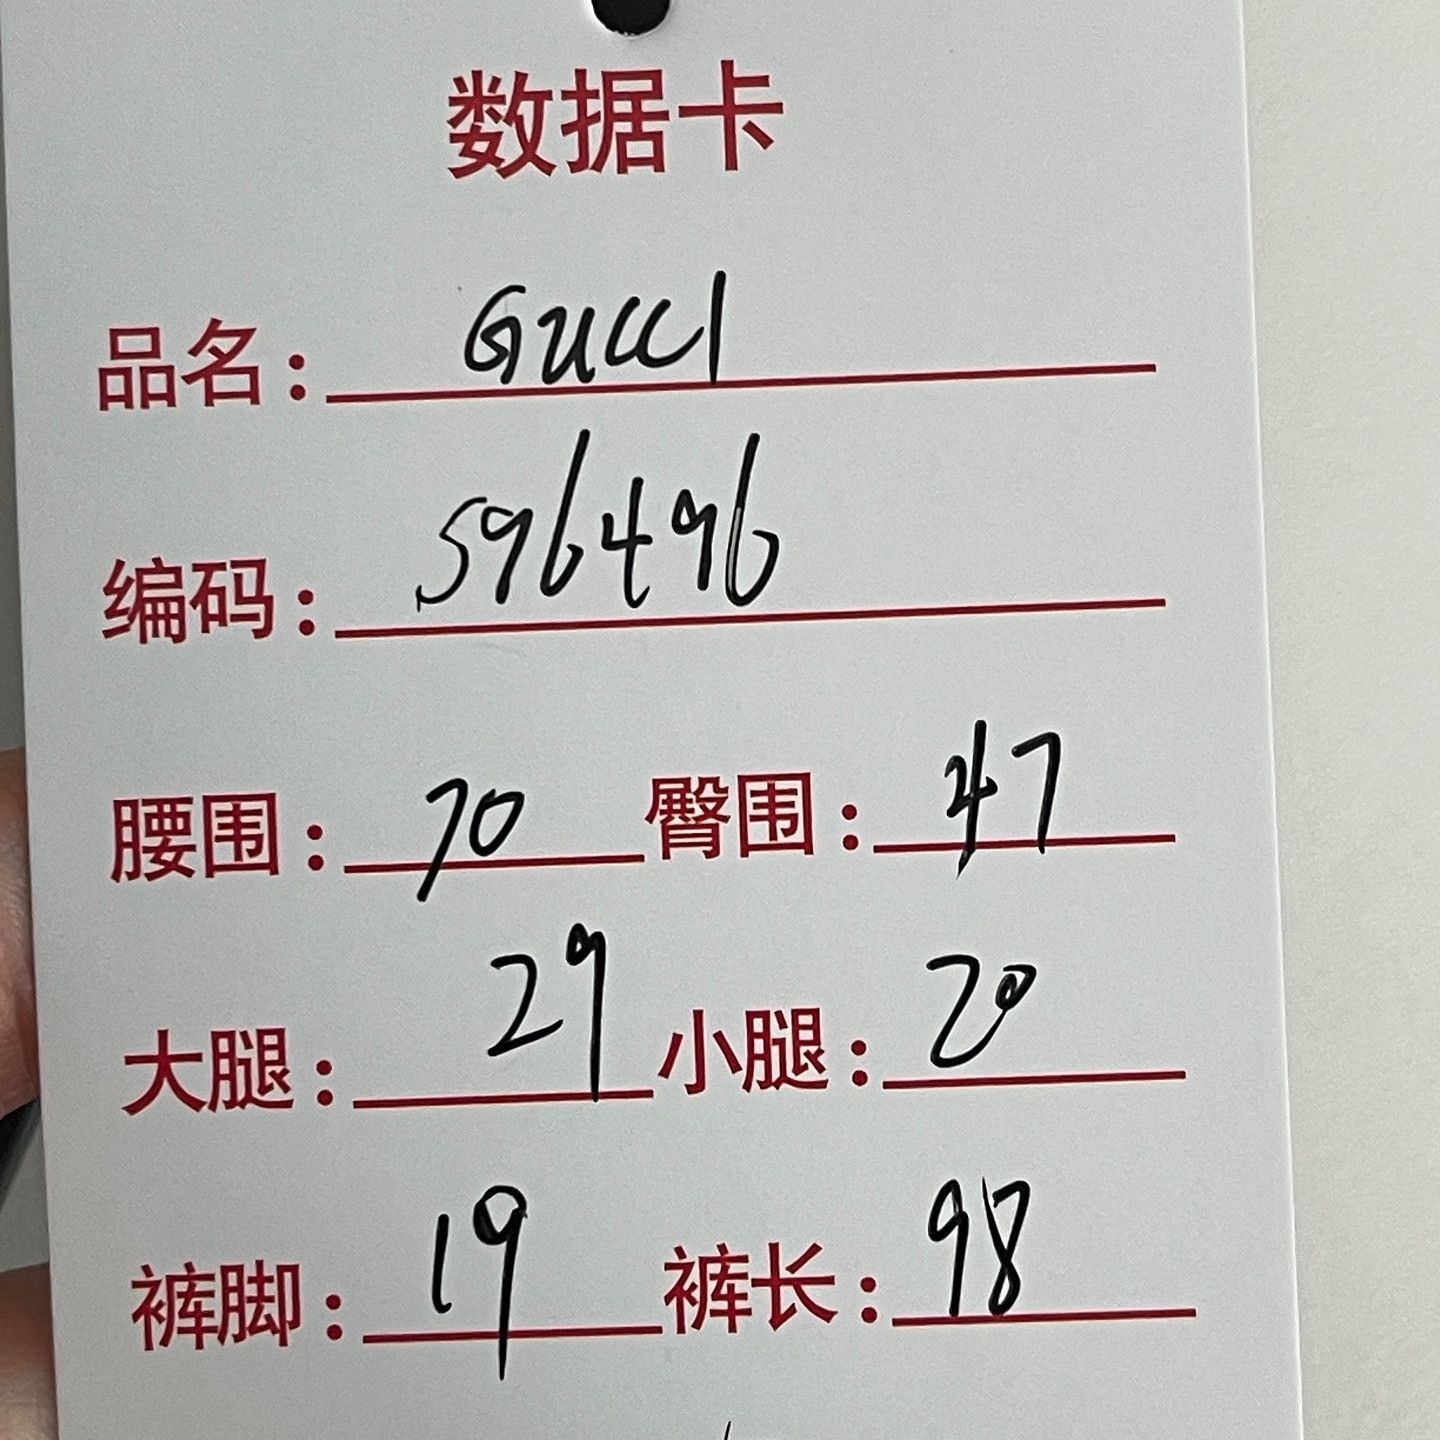 数据卡
品名：Gucci
编码：596496
腰围：70 臀围：47
大腿：29 小腿：20
裤脚：19 裤长：98